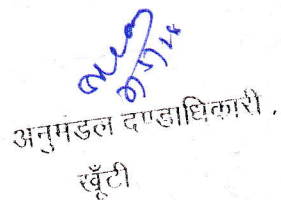 अनुमंडल दण्डाधिकारी,
खूँटी